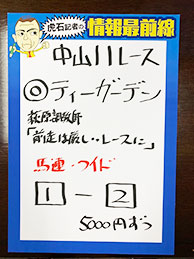 虎石記者の
情報最前線
中山11レース
◎ティーガーデン
萩原調教師
「前走は厳しいレースに」
馬連・ワイド
1-2
5000円ずつ